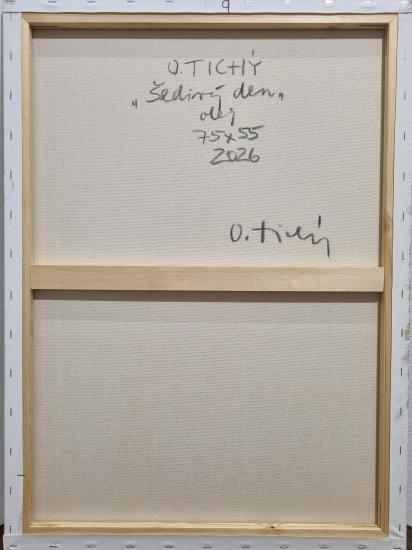 9
O. TICHÝ
„Šedivý den"
olej
75x55
2026
O. Tichý